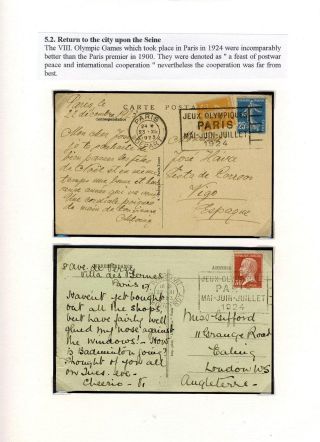 5.2. Return to the city upon the Seine
The VIII. Olympic Games which took place in Paris in 1924 were incomparably
better than the Paris premier in 1900. They were denoted as " a feast of postwar
peace and international cooperation " nevertheless the cooperation was far from
best.
CARTE POSTALE
Paris, le
22 décembre
Correspondance
PARIS
1923
DEPART
JEUX OLYMPIQUES
PARIS
MAI-JUIN-JUILLET
1924
Mon cher
je te souhaite
bien passer les fêtes
de Noël et en même
temps
année qui va venir
Une cordiale poignée
de main de ton
José
Vigo
Espagne
8 Ave.
Villa des
Paris 17.
Havent yet bought
out all the shops,
but have fairly well
glued my nose against
the windows! How
is Badminton going?
Thought of you all
on Tues. eve.
Cheerio
JEUX OLYMPIQUES
PARIS
MAI-JUIN-JUILLET
1924
Miss Gifford
11 Grange Road
Ealing
London W5
Angleterre